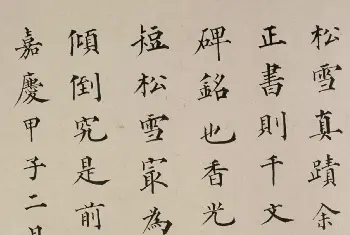 松雪真蹟余
正書則千文
碑銘也香光
短松雪冣為
傾倒究是前
嘉慶甲子二月